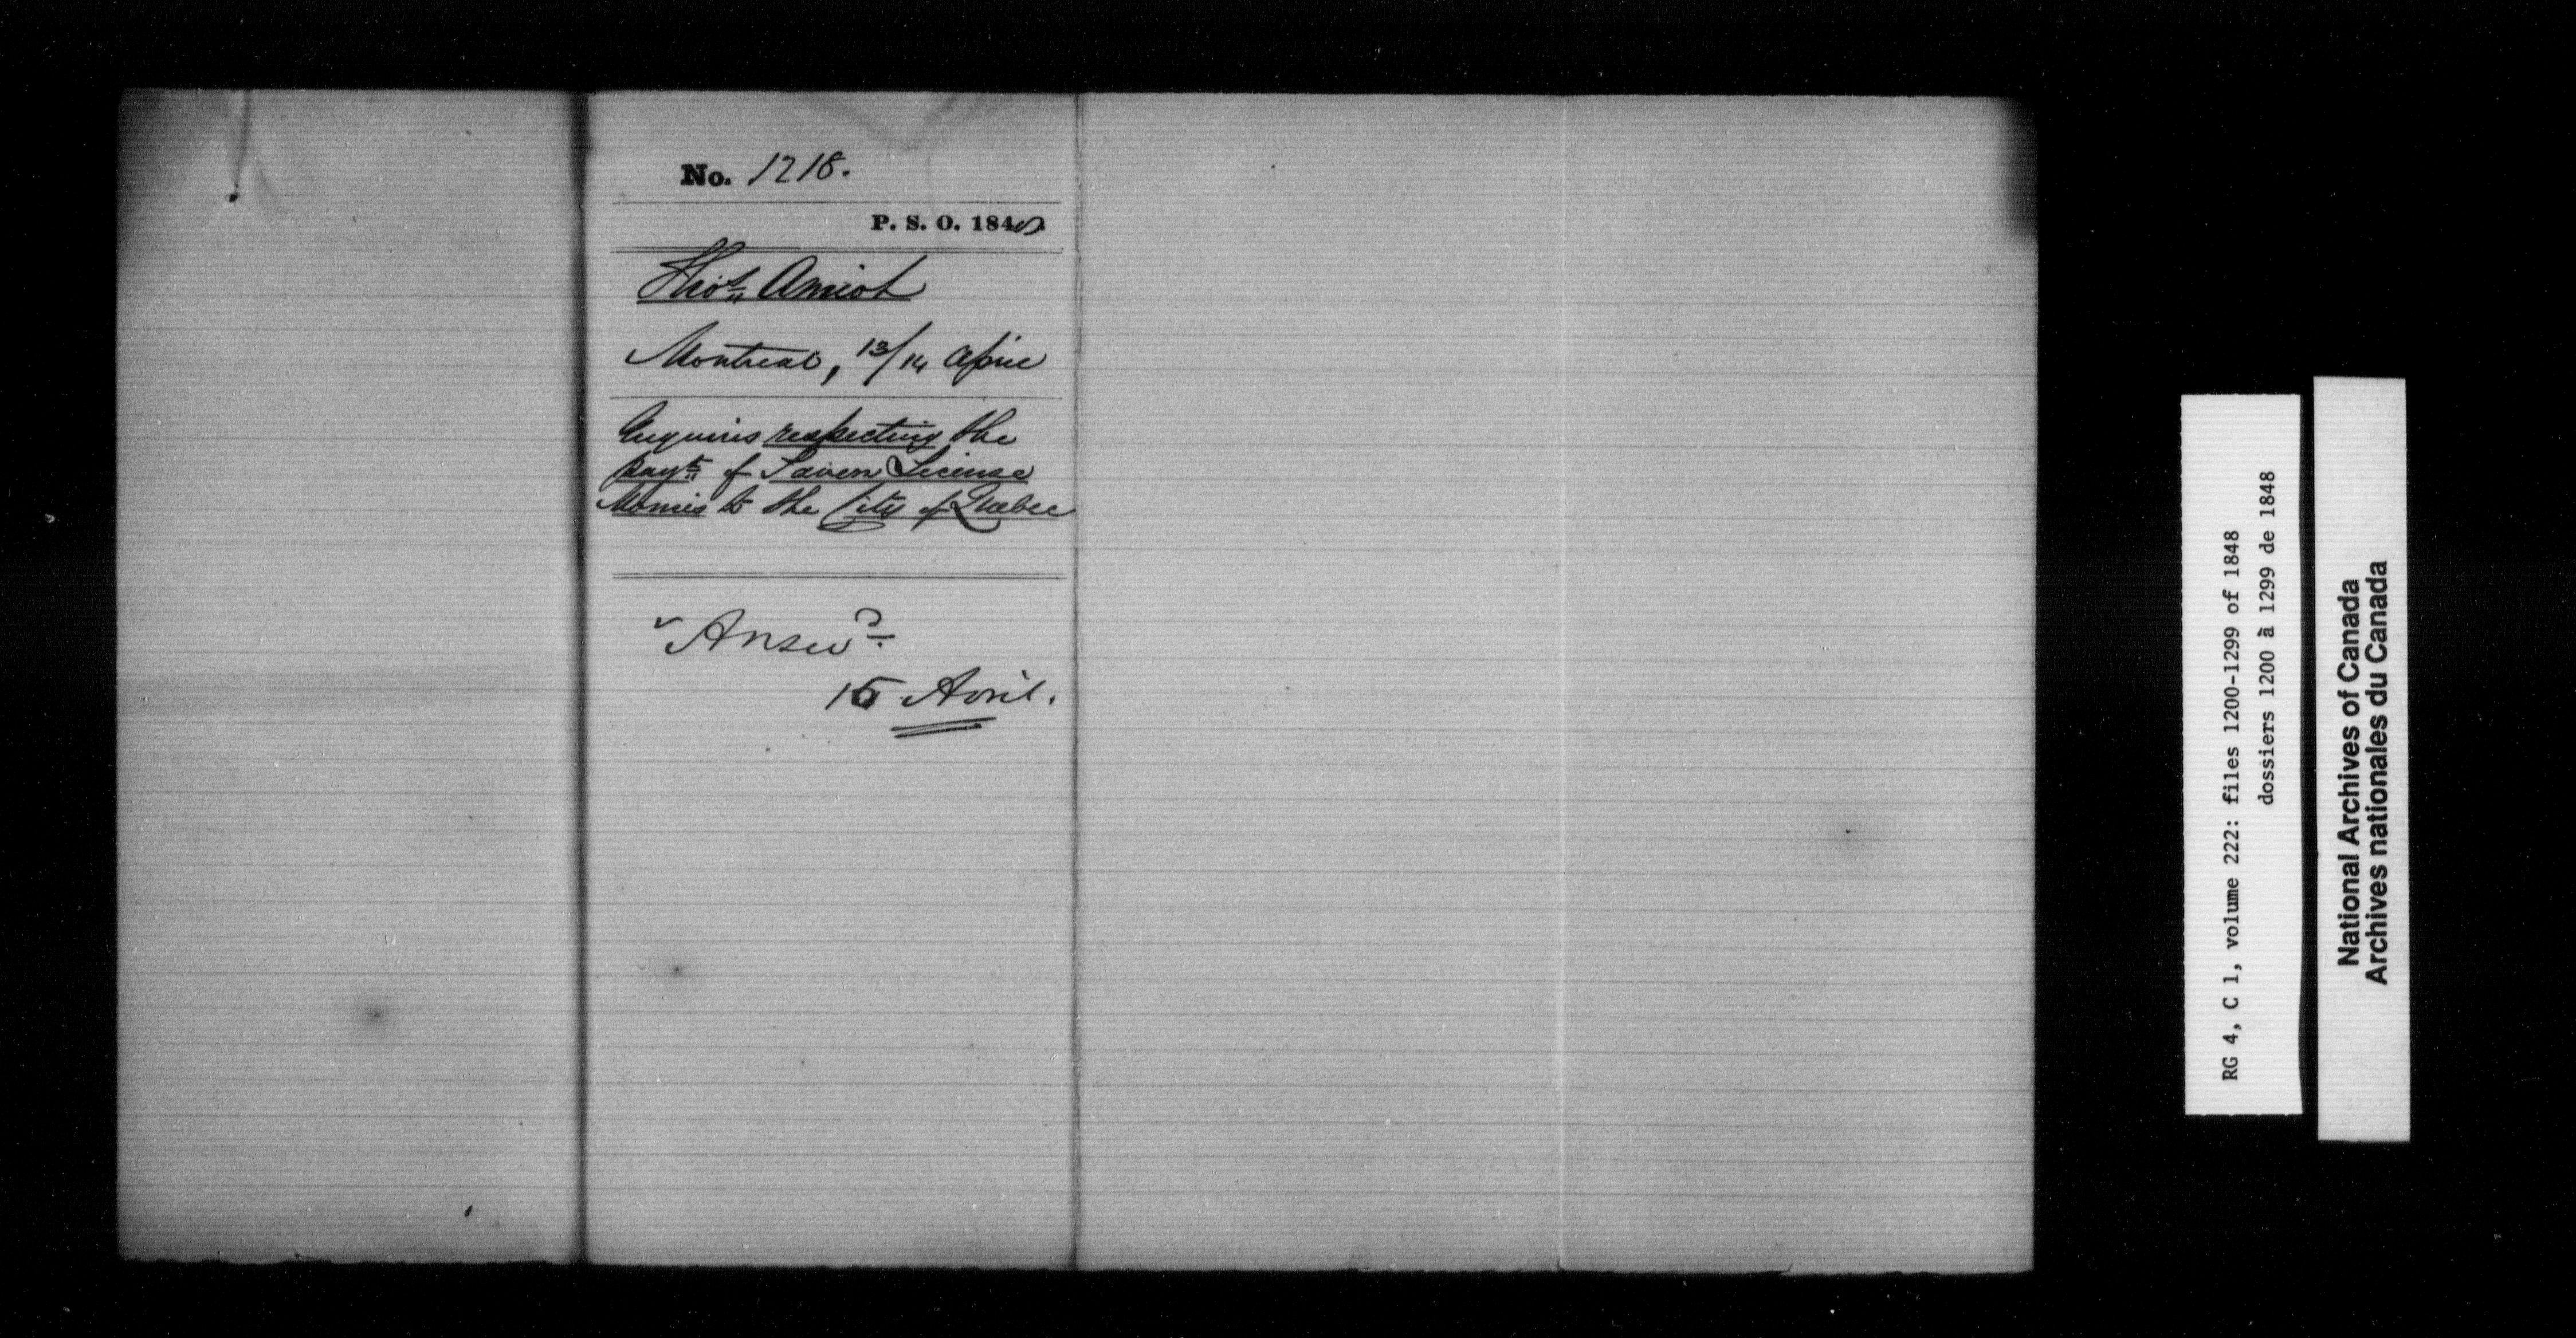 No. 1218.
P. S. O. 1848
Thos. Amiot
Montreal, 13/14 April
Enquires respecting the
payt. of Tavern License
Monies to the City of Quebec
Answd.
15 Avril.
RG 4, C 1, volume 222: files 1200-1299 of 1848
dossiers 1200 à 1299 de 1848
National Archives of Canada
Archives nationales du Canada